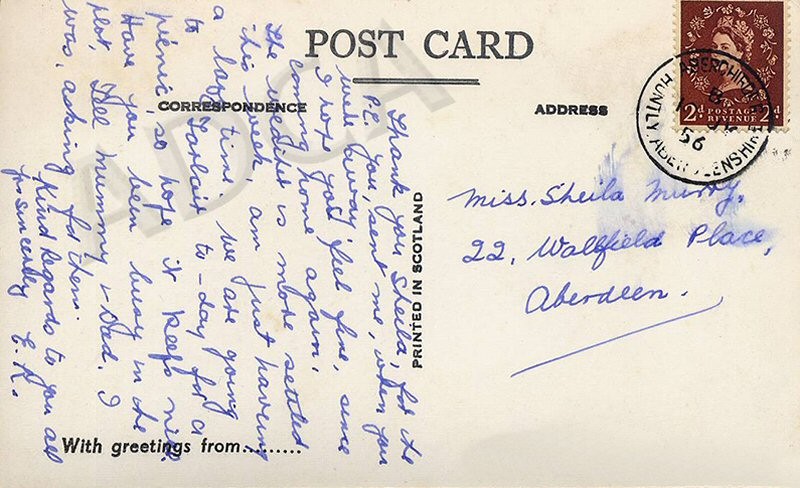 POST CARD
CORRESPONDENCE
ADDRESS
Thank you Sheila, for the
P.C. you, sent me, when you
were away.
I hope you feel fine, since
coming home again.
The weather is more settled
this week, am just having
a lazy time. We are going
to Tarlair to-day for a
picnic, so hope it keeps nice.
Have you been busy in the
plot, Tell Mummy & Dad. I
was, asking for them.
Kind Regards to you all
Yrs Sincerley E. R.
Miss. Sheila Murry.
22, Wallfield Place,
Aberdeen.
PRINTED IN SCOTLAND
With greetings from.........
2d POSTAGE REVENUE 2d
ABERCHIRDER
56
HUNTLY, ABERDEENSHIRE
ADCA